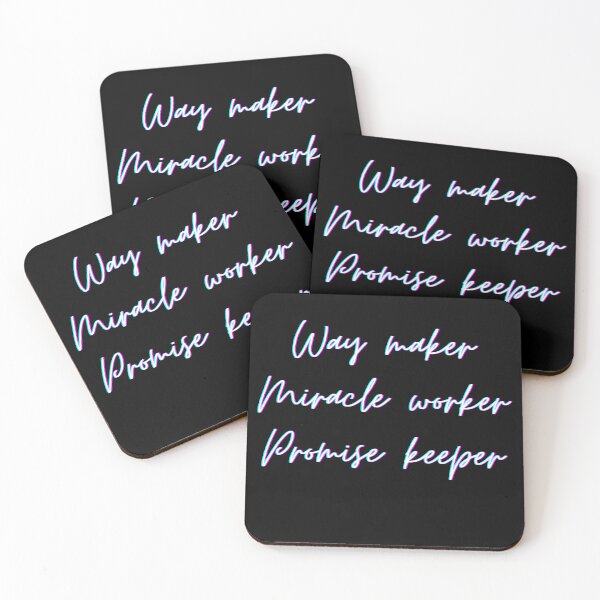 Way maker
Miracle worker
keeper
Way maker
Miracle worker
Promise keeper
Way maker
Miracle worker
Promise
Way maker
Miracle worker
Promise keeper